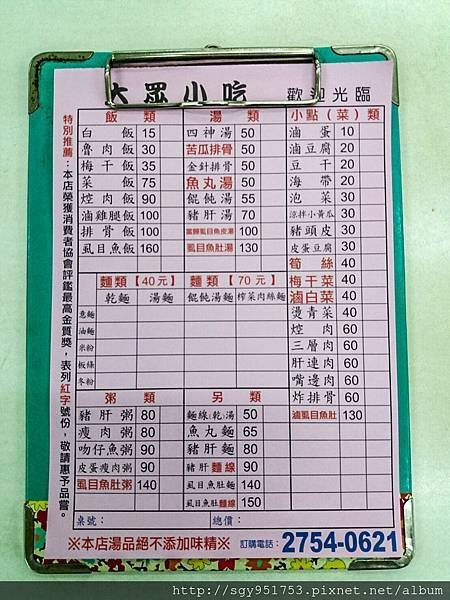 大眾小吃 歡迎光臨
特別推薦：本店榮獲消費者協會評鑑最高金質獎，表列紅字號份，敬請惠予品嘗。
飯類
白飯 15
魯肉飯 30
梅干飯 35
菜飯 75
焢肉飯 90
滷雞腿飯 100
排骨飯 100
虱目魚飯 160
湯類
四神湯 50
苦瓜排骨 50
金針排骨 50
魚丸湯 50
餛飩湯 55
豬肝湯 70
當歸虱目魚皮湯 100
虱目魚肚湯 130
小點（菜）類
滷蛋 10
滷豆腐 20
豆干 20
海帶 20
泡菜 30
涼拌小黃瓜 30
豬頭皮 30
皮蛋豆腐 30
筍絲 40
梅干菜 40
滷白菜 40
燙青菜 40
焢肉 60
三層肉 60
肝連肉 60
嘴邊肉 60
炸排骨 60
滷虱目魚肚 130
麵類【40元】
乾麵 湯麵
麵類【70元】
餛飩湯麵 榨菜肉絲麵
意麵
油麵
米粉
板條
冬粉
粥類
豬肝粥 80
瘦肉粥 80
吻仔魚粥 90
皮蛋瘦肉粥 90
虱目魚肚粥 140
另類
麵線(乾)湯 50
魚丸麵 65
豬肝麵 80
豬肝麵線 90
虱目魚肚麵 140
虱目魚肚麵線 150
桌號： 總價：
※本店湯品絕不添加味精※ 訂購電話：2754-0621
http://sgy951753.pixnet.net/album